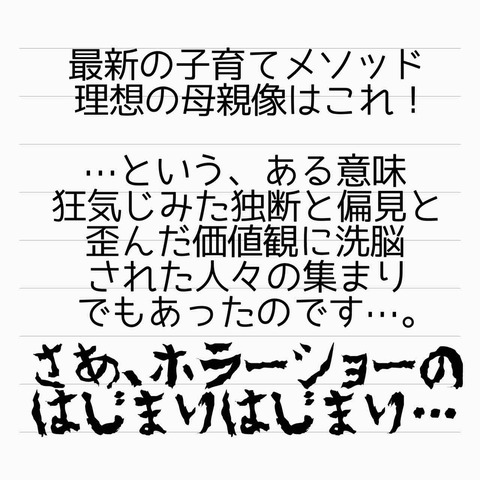 最新の子育てメソッド
理想の母親像はこれ！
…という、ある意味
狂気じみた独断と偏見と
歪んだ価値観に洗脳
された人々の集まり
でもあったのです…。
さあ、ホラーショーの
はじまりはじまり…